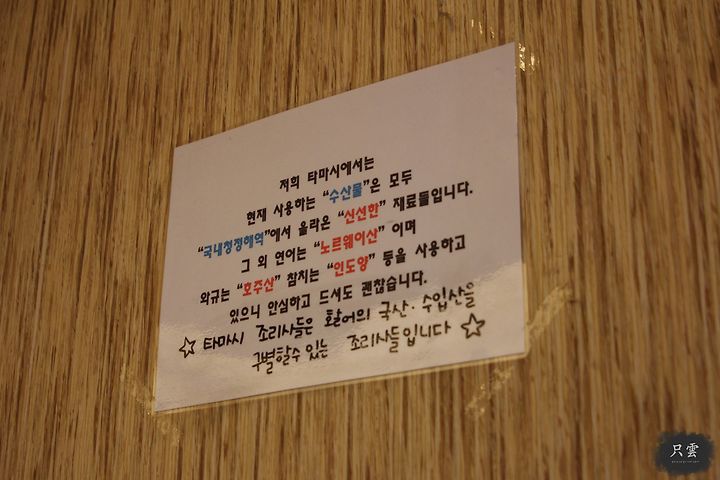 저희 타마시에서는
현재 사용하는 "수산물"은 모두
"국내청정해역"에서 올라온 "신선한" 재료들입니다.
그 외 연어는 "노르웨이산" 이며
와규는 "호주산" 참치는 "인도양" 등을 사용하고
있으니 안심하고 드셔도 괜찮습니다.
☆ 타마시 조리사들은 활어의 국산·수입산을
구별할수 있는 조리사들입니다 ☆
只雲